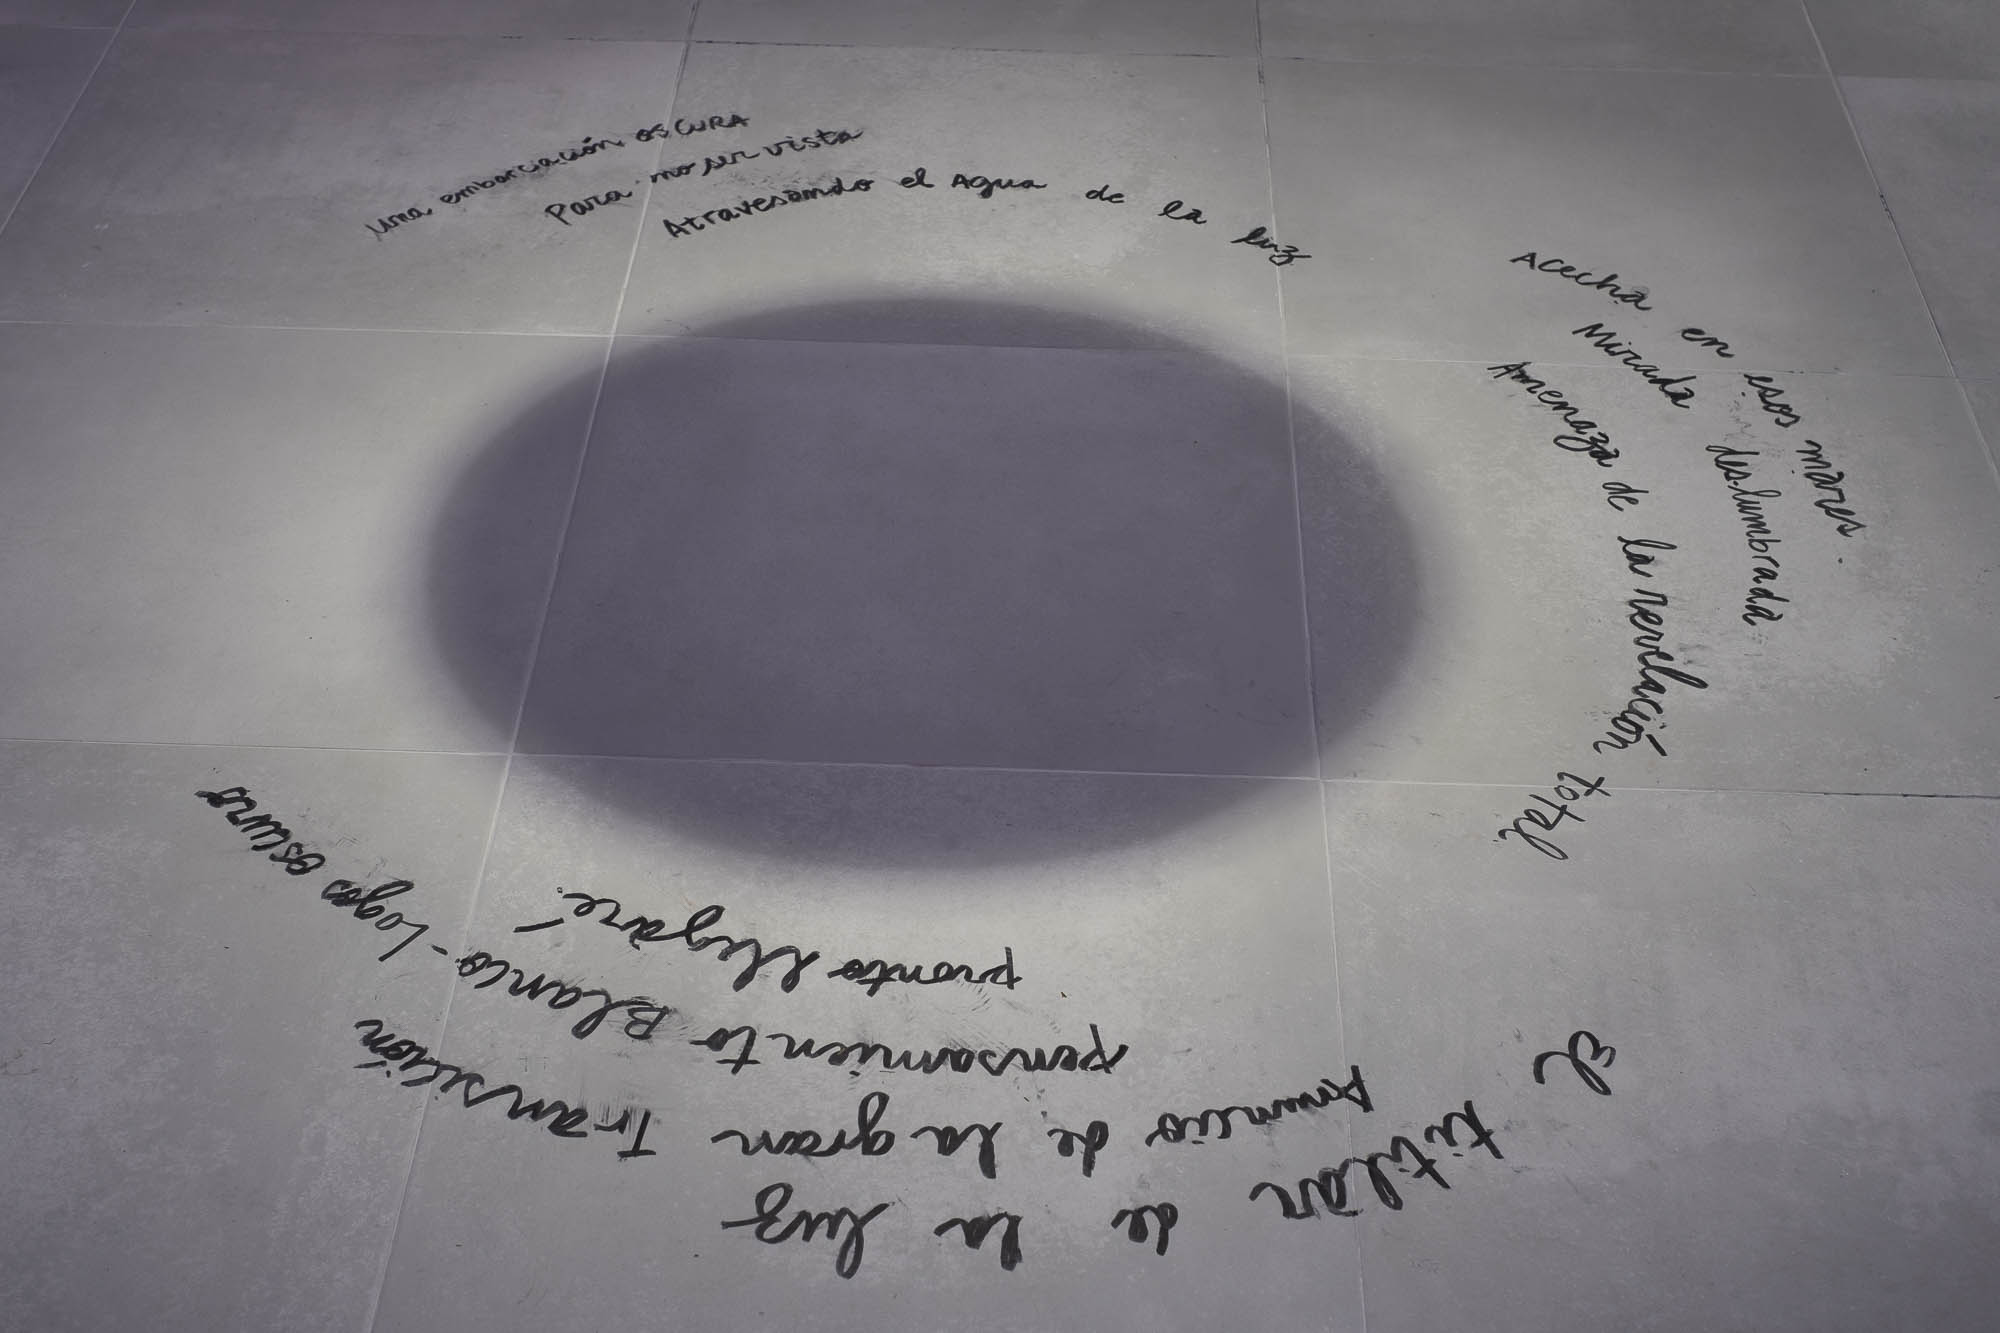 una embarcación oscura
Para no ser vista
Atravesando el Agua de la luz
Acecha en esos mares.
Mirada deslumbrada
Amenaza de la revelación total
El titilar de la luz
Anuncio de la gran Transición
pensamiento Blanco - Logos oscuro
pronto llegaré.